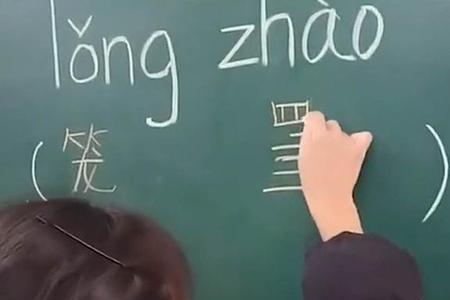 lǒng zhào
(笼 罩)